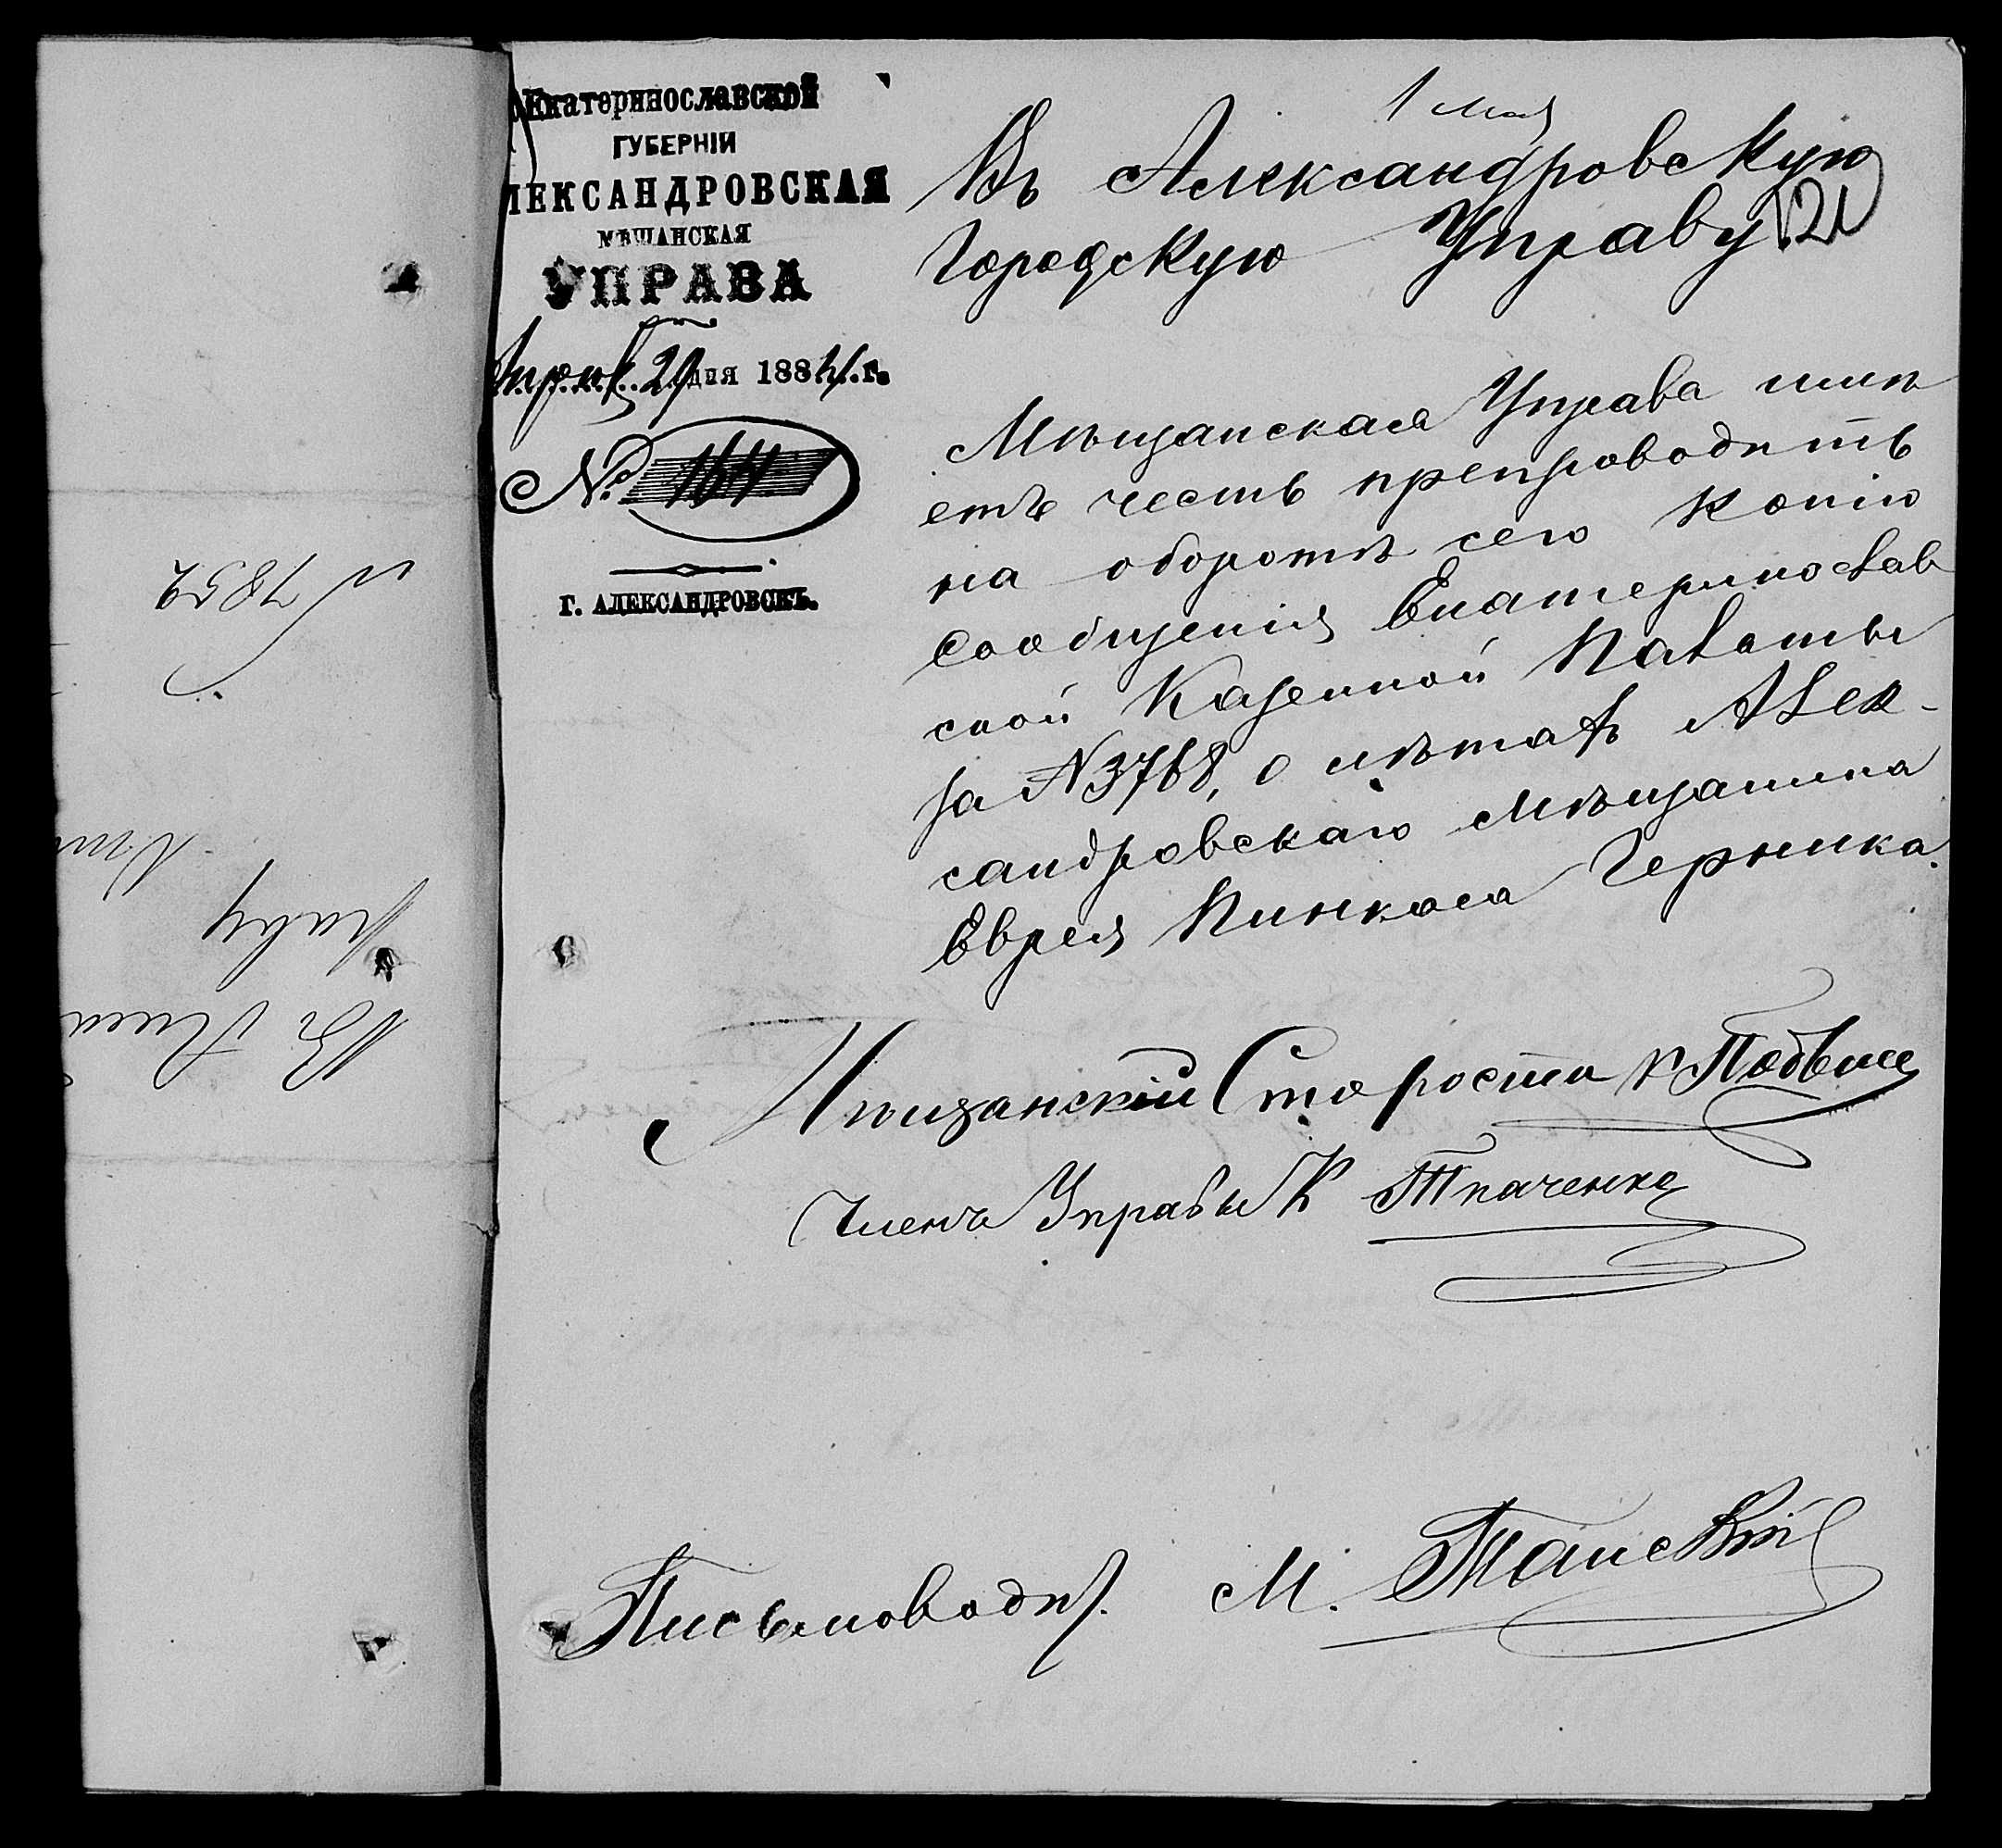 Екатеринославской
ГУБЕРНІИ
ЛЕКСАНДРОВСКАЯ
МѢЩАНСКАЯ
УПРАВА
Апрѣля 29 дня 1884 г.
№ 164
Г. АЛЕКСАНДРОВСКЪ.
1 Мая
Въ Александровскую
Городскую Управу
121
Мѣщанская Управа имѣ
етъ честь препроводить
на оборотѣ сего копію
сообщенія Екатеринослав
ской Казенной Палаты
за N 3768, о лѣтахъ Алек-
сандровскаго мѣщанина
Еврея Пинкаса Черника.
Мѣщанскій Староста К
Членъ Управы К Ткаченко
Письмовод. М.
N 7852
Въ